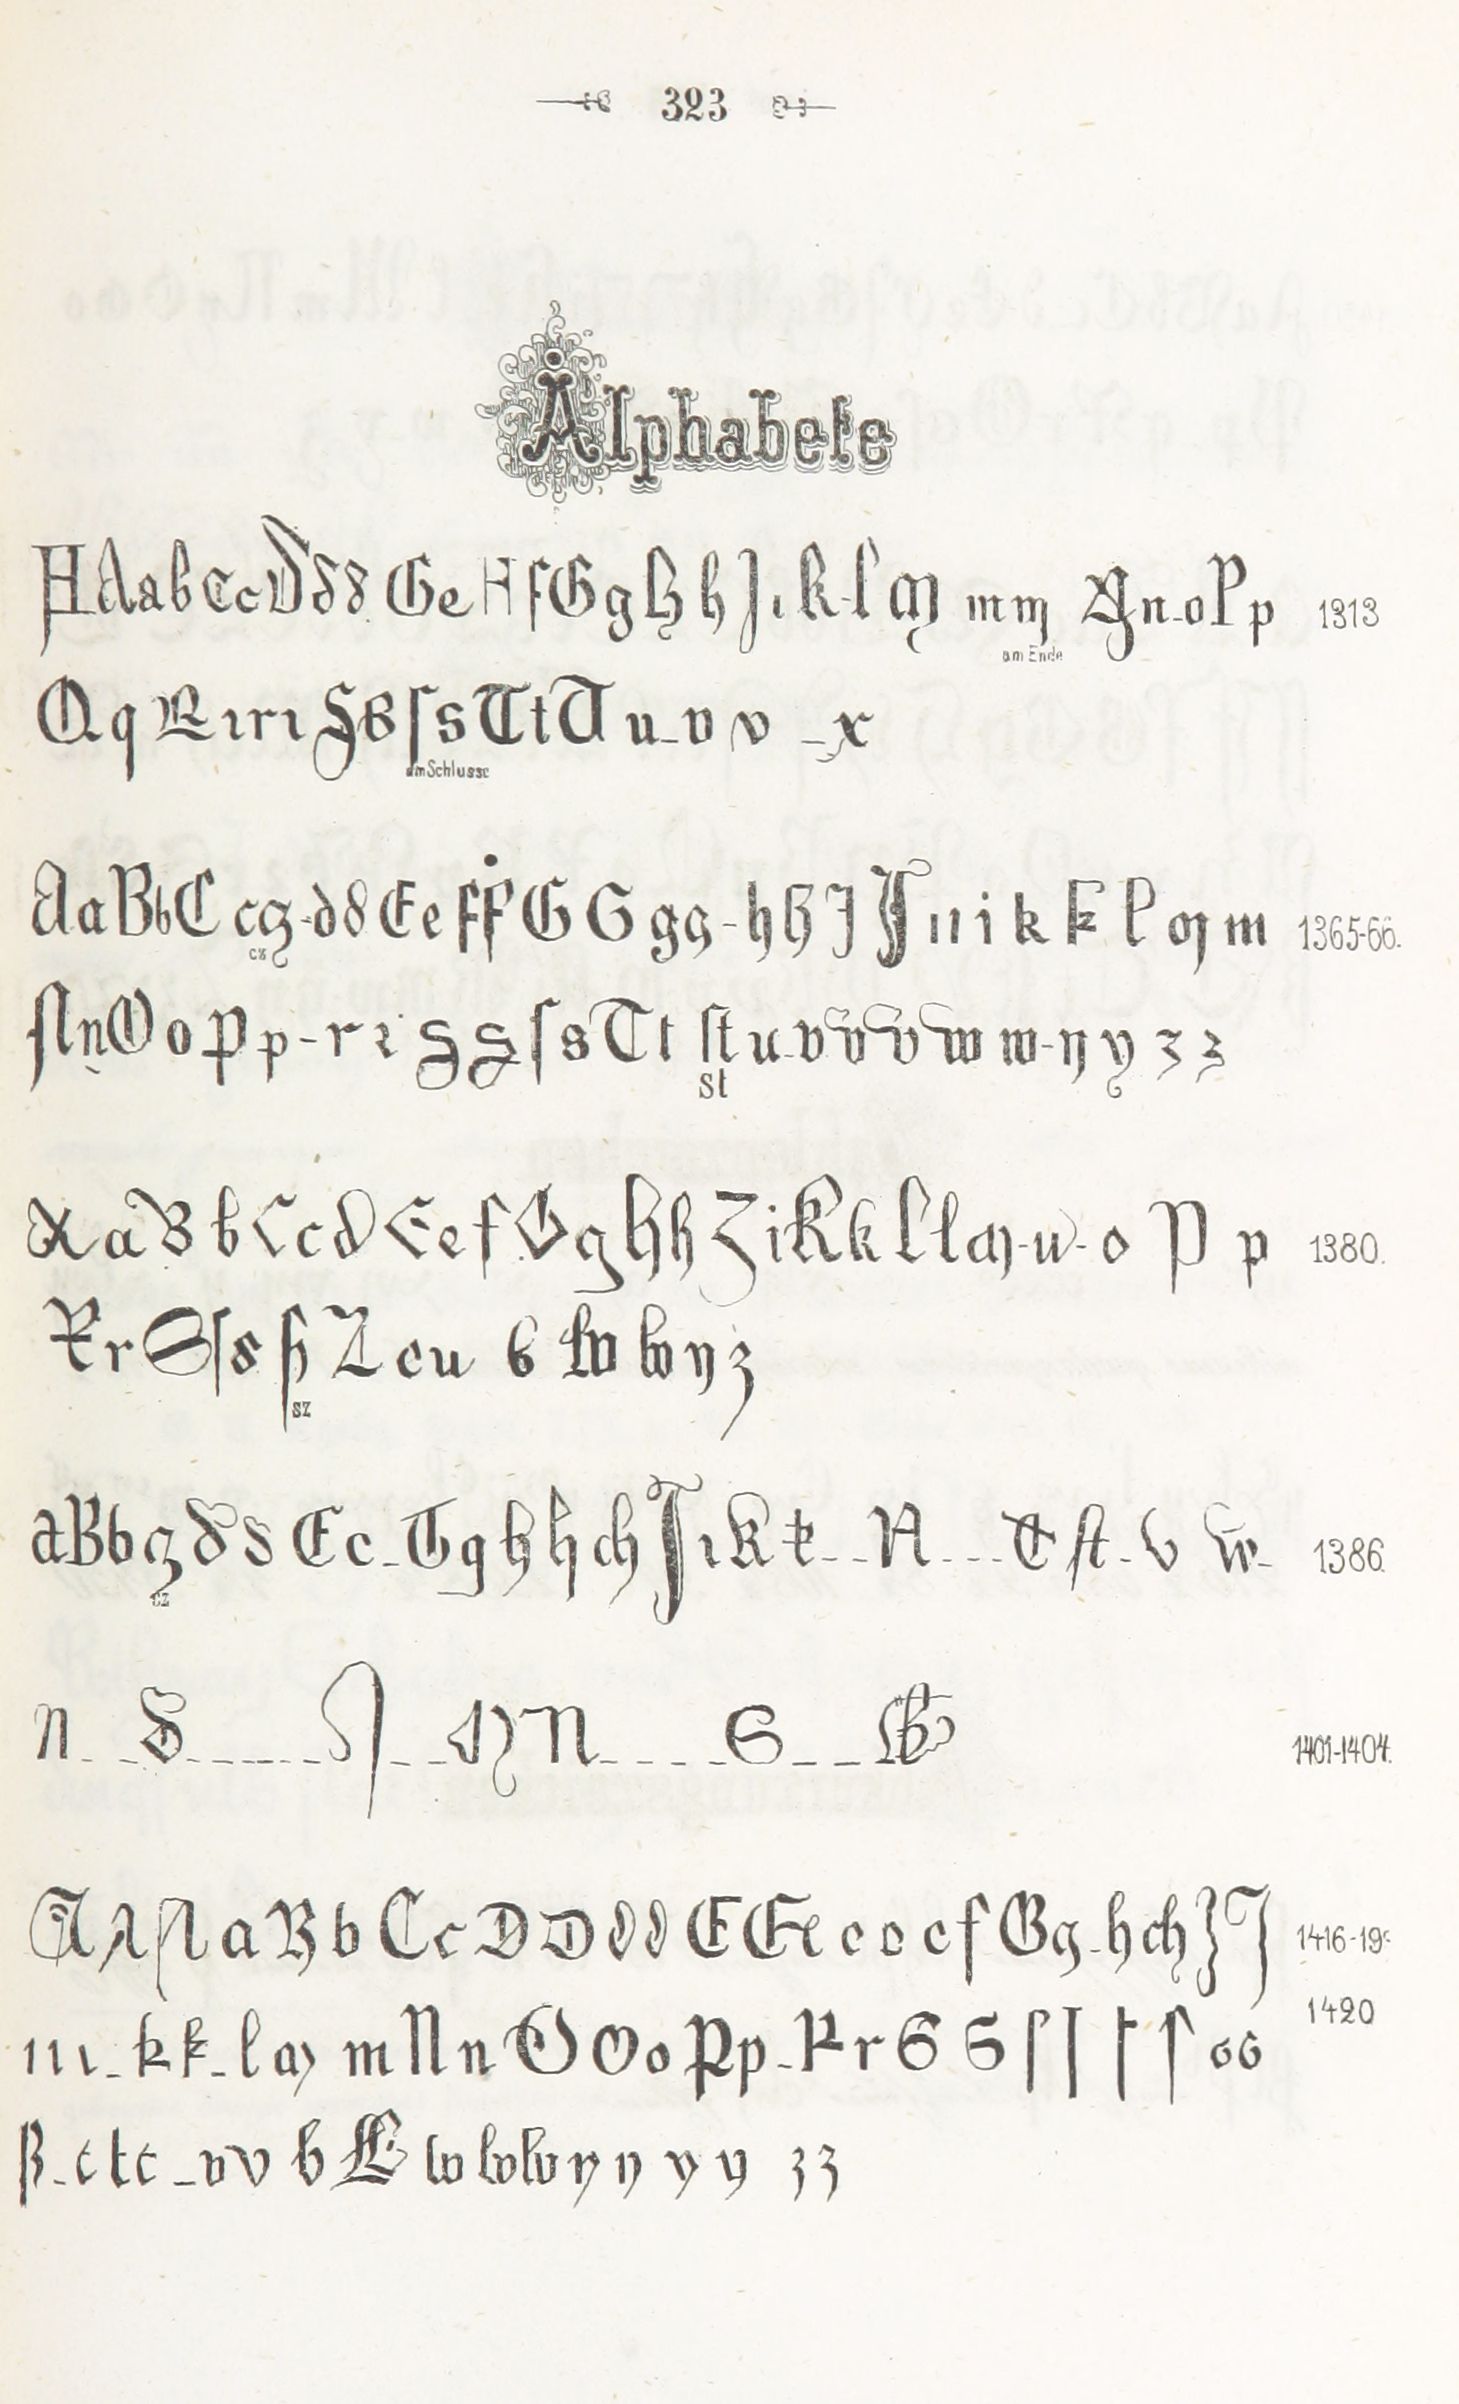 323
Alphabete
A A a b C c D d d G e H f G g H h J i k l M m m N n o P p 1313
am Ende
Q q R r r S B ſ s T t U u v v x
am Schlusse
A a B b C c cz d d E e F F G G g g h h J J i i k k l m m 1365-66.
cz
A n O o P p r r S S ſ s T t ſt u v v v w w y y z z
St
A a B b C c d E e f G g H h J i K k l l m u o P p 1380.
R r S ſ s ß T t u b W w y z
sz
a B b cz d d E e G g h h ch J i K k N T ſt v w 1386.
cz
n d J M N S W 1401-1404.
A A A a B b C c D D d d E E e e e e f G g h ch J J 1416-19.
1420
i i i k k l m m N n O O o P p R r S S ſ ſ ſ ſ s s
ß t t t v v b W w w w y y y y z z